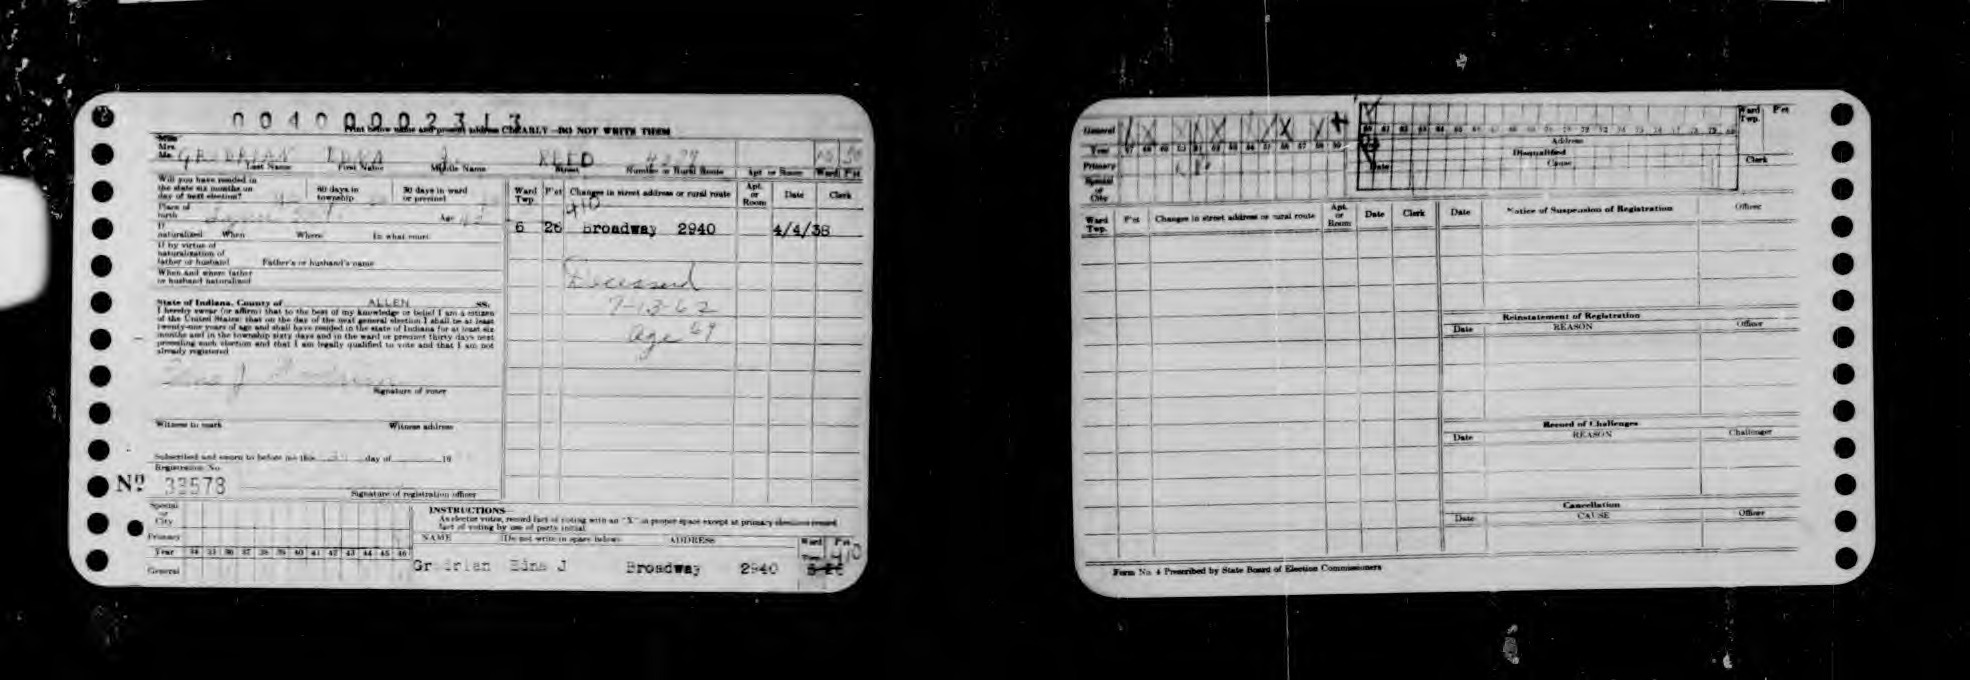 0040002313
Print below name and present address CLEARLY—DO NOT WRITE THEM
Miss
Mrs.
Mr. EDNA J. REED
Last Name First Name Middle Name Street Number or Rural Route Apt. or Room Ward Pct.
Will you have resided in
the state six months on
day of next election?
60 days in
township
30 days in ward
or precinct
Place of
birth Age
If
naturalized When Where In what court
If by virtue of
naturalization of
father or husband Father's or husband's name
When and where father
or husband naturalized
State of Indiana, County of ALLEN SS:
I hereby swear (or affirm) that to the best of my knowledge or belief I am a citizen
of the United States; that on the day of the next general election I shall be at least
twenty-one years of age and shall have resided in the state of Indiana for at least six
months and in the township sixty days and in the ward or precinct thirty days next
preceding such election and that I am legally qualified to vote and that I am not
already registered
Signature of voter
Witness to mark Witness address
Subscribed and sworn to before me this day of 19
Registration No.
No 33578
Signature of registration officer
Ward
Twp. P'ct Changes in street address or rural route Apt.
or
Room Date Clerk
410
6 26 Broadway 2940 4/4/38
Deceased
7-13-62
age 69
Special
or
City
Primary
Year 34 35 36 37 38 39 40 41 42 43 44 45 46
General
INSTRUCTIONS—
As elector votes, record fact of voting with an "X" in proper space except at primary elections record
fact of voting by use of party initial
NAME (Do not write in space below) ADDRESS Ward P'ct
Edna J Broadway 2940 6-26 410
General
Year 47 48 49 50 51 52 53 54 55 56 57 58 59
Primary
Special
or
City
60 61 62 63 64 65 66 67 68 69 70 71 72 73 74 75 76 77 78 79 80
Ward
Twp. P'ct
Address
Disqualified
Date Cause Clerk
Ward
Twp. P'ct Changes in street address or rural route Apt.
or
Room Date Clerk
Date Notice of Suspension of Registration Officer
Reinstatement of Registration
Date REASON Officer
Record of Challenges
Date REASON Challenger
Cancellation
Date CAUSE Officer
Form No. 4 Prescribed by State Board of Election Commissioners